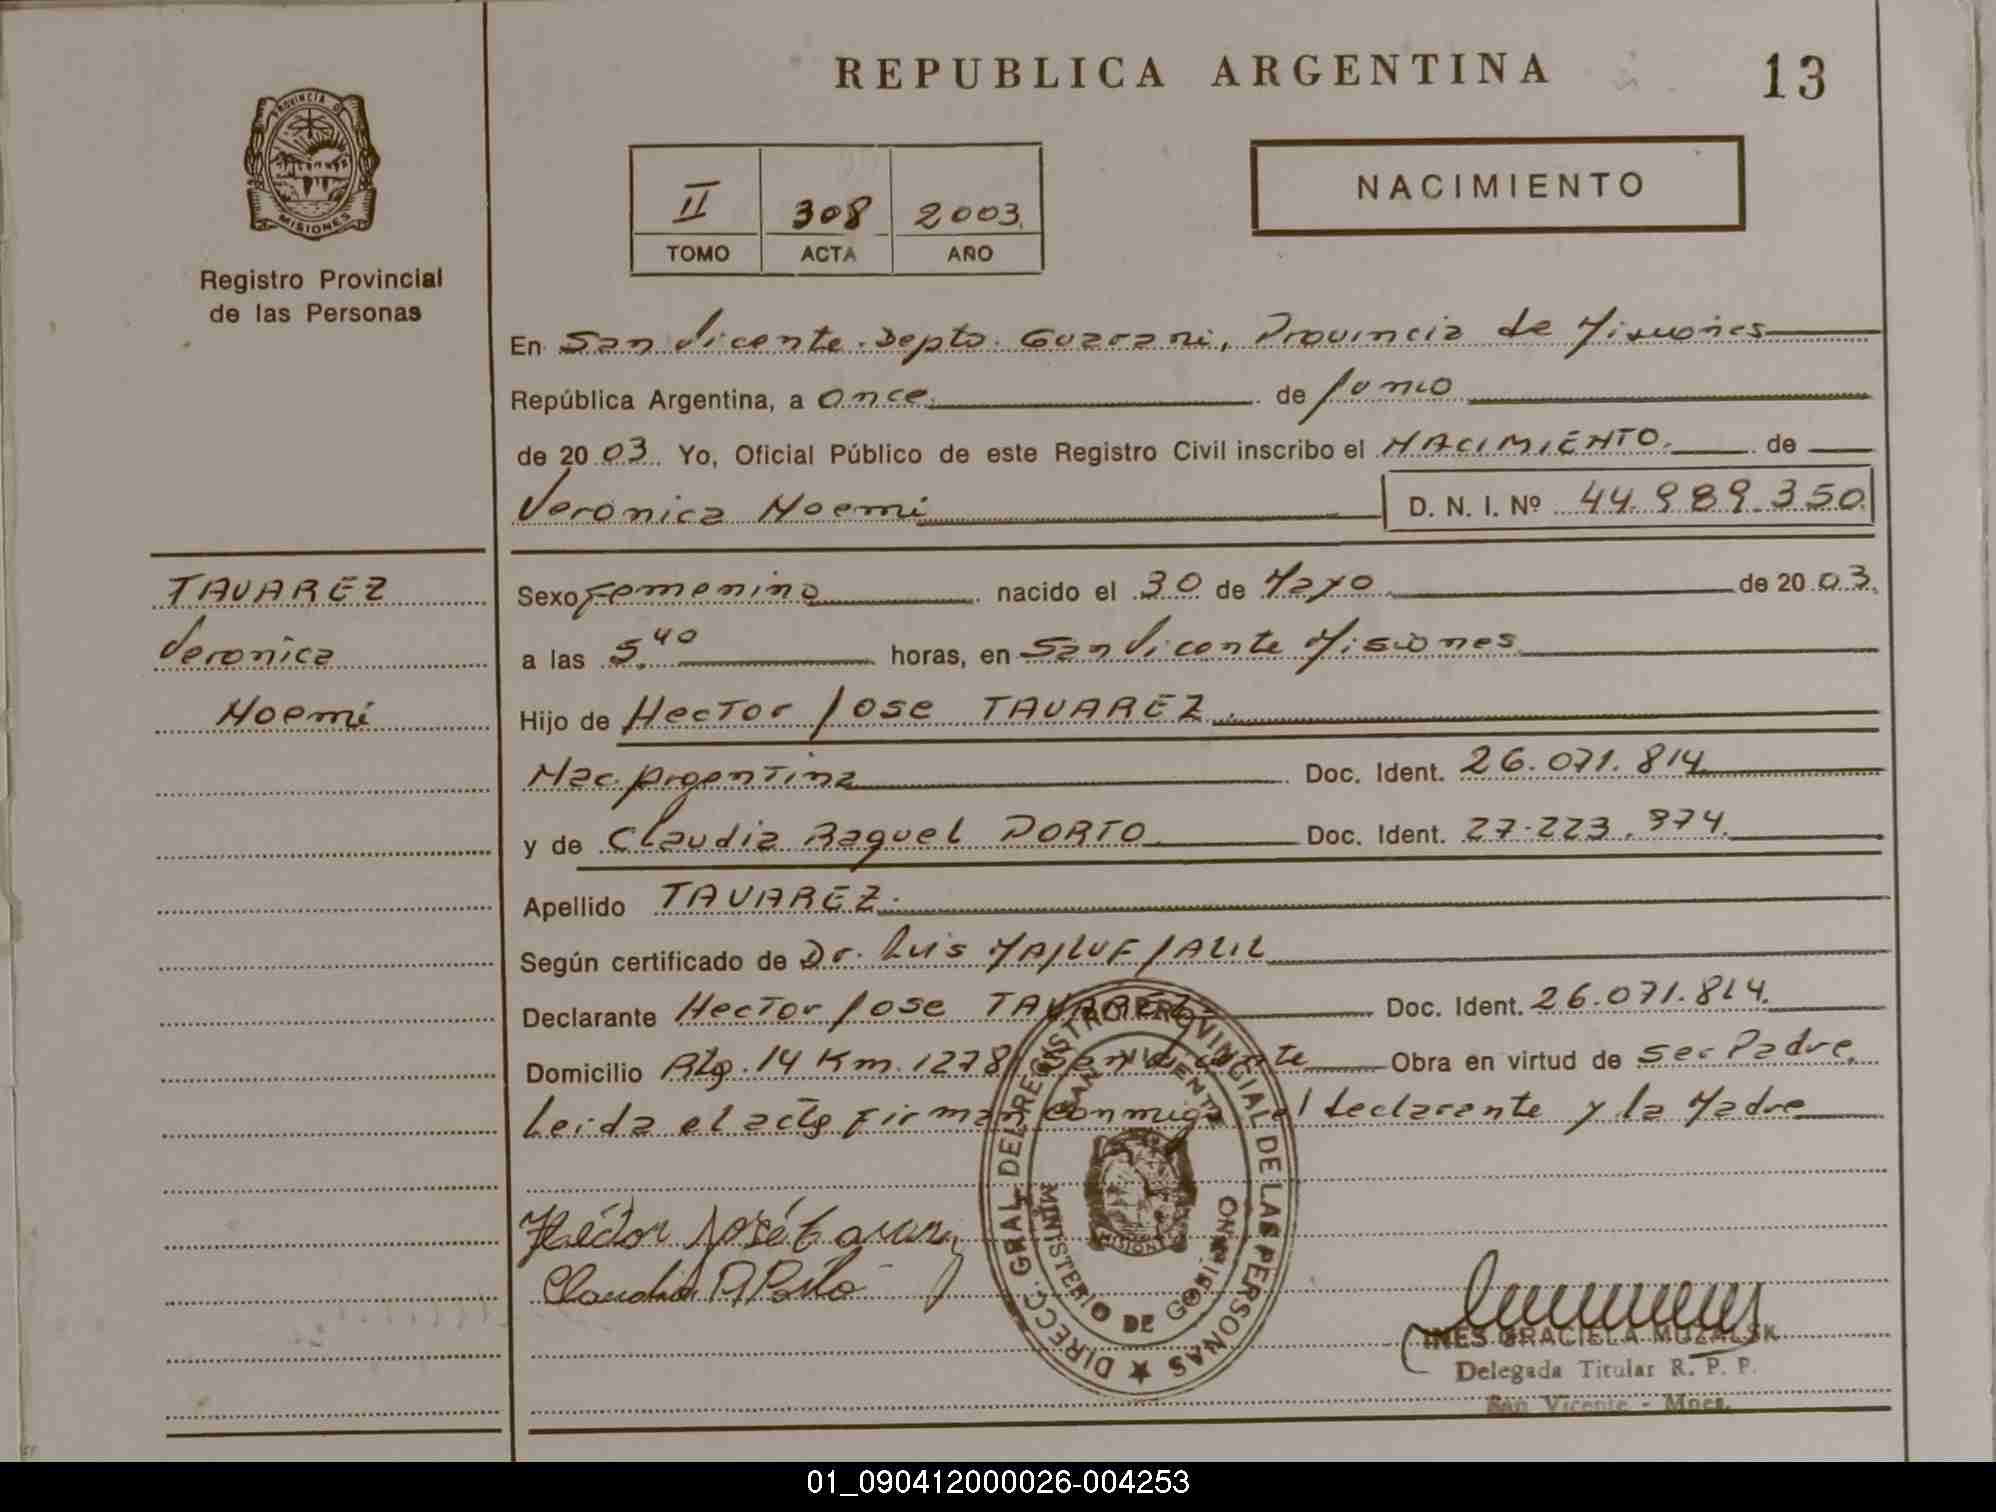 REPUBLICA ARGENTINA
13
PROVINCIA DE
MISIONES
Registro Provincial
de las Personas
II 308 2003.
TOMO ACTA AÑO
NACIMIENTO
En San Vicente. Depto. Guarani, Provincia de Misiones
República Argentina, a once. de Junio
de 2003. Yo, Oficial Público de este Registro Civil inscribo el NACIMIENTO. de
Veronica Noemi D. N. I. Nº 44.989.350.
TAVAREZ
Veronica
Noemi
Sexo Femenino nacido el 30 de Mayo de 2003.
a las 5.40 horas, en San Vicente Misiones
Hijo de Hector Jose TAVAREZ.
Nac. Argentina Doc. Ident. 26.071.814
y de Claudia Raquel PORTO Doc. Ident. 27.223.974.
Apellido TAVAREZ.
Según certificado de Dr. Luis
Declarante Hector Jose TAVAREZ Doc. Ident. 26.071.814.
Domicilio Km. 1278 San Vicente Obra en virtud de ser Padre.
Leida el acta firman conmigo el declarante y la Madre
Héctor José Tavarez
Claudia R Porto
DIRECC. GRAL. DEL REGISTRO PROVINCIAL DE LAS PERSONAS
SAN VICENTE
MISIONES
MINISTERIO DE GOBIERNO
INES GRACIELA
Delegada Titular R. P. P.
San Vicente - Mnes.
01_090412000026-004253